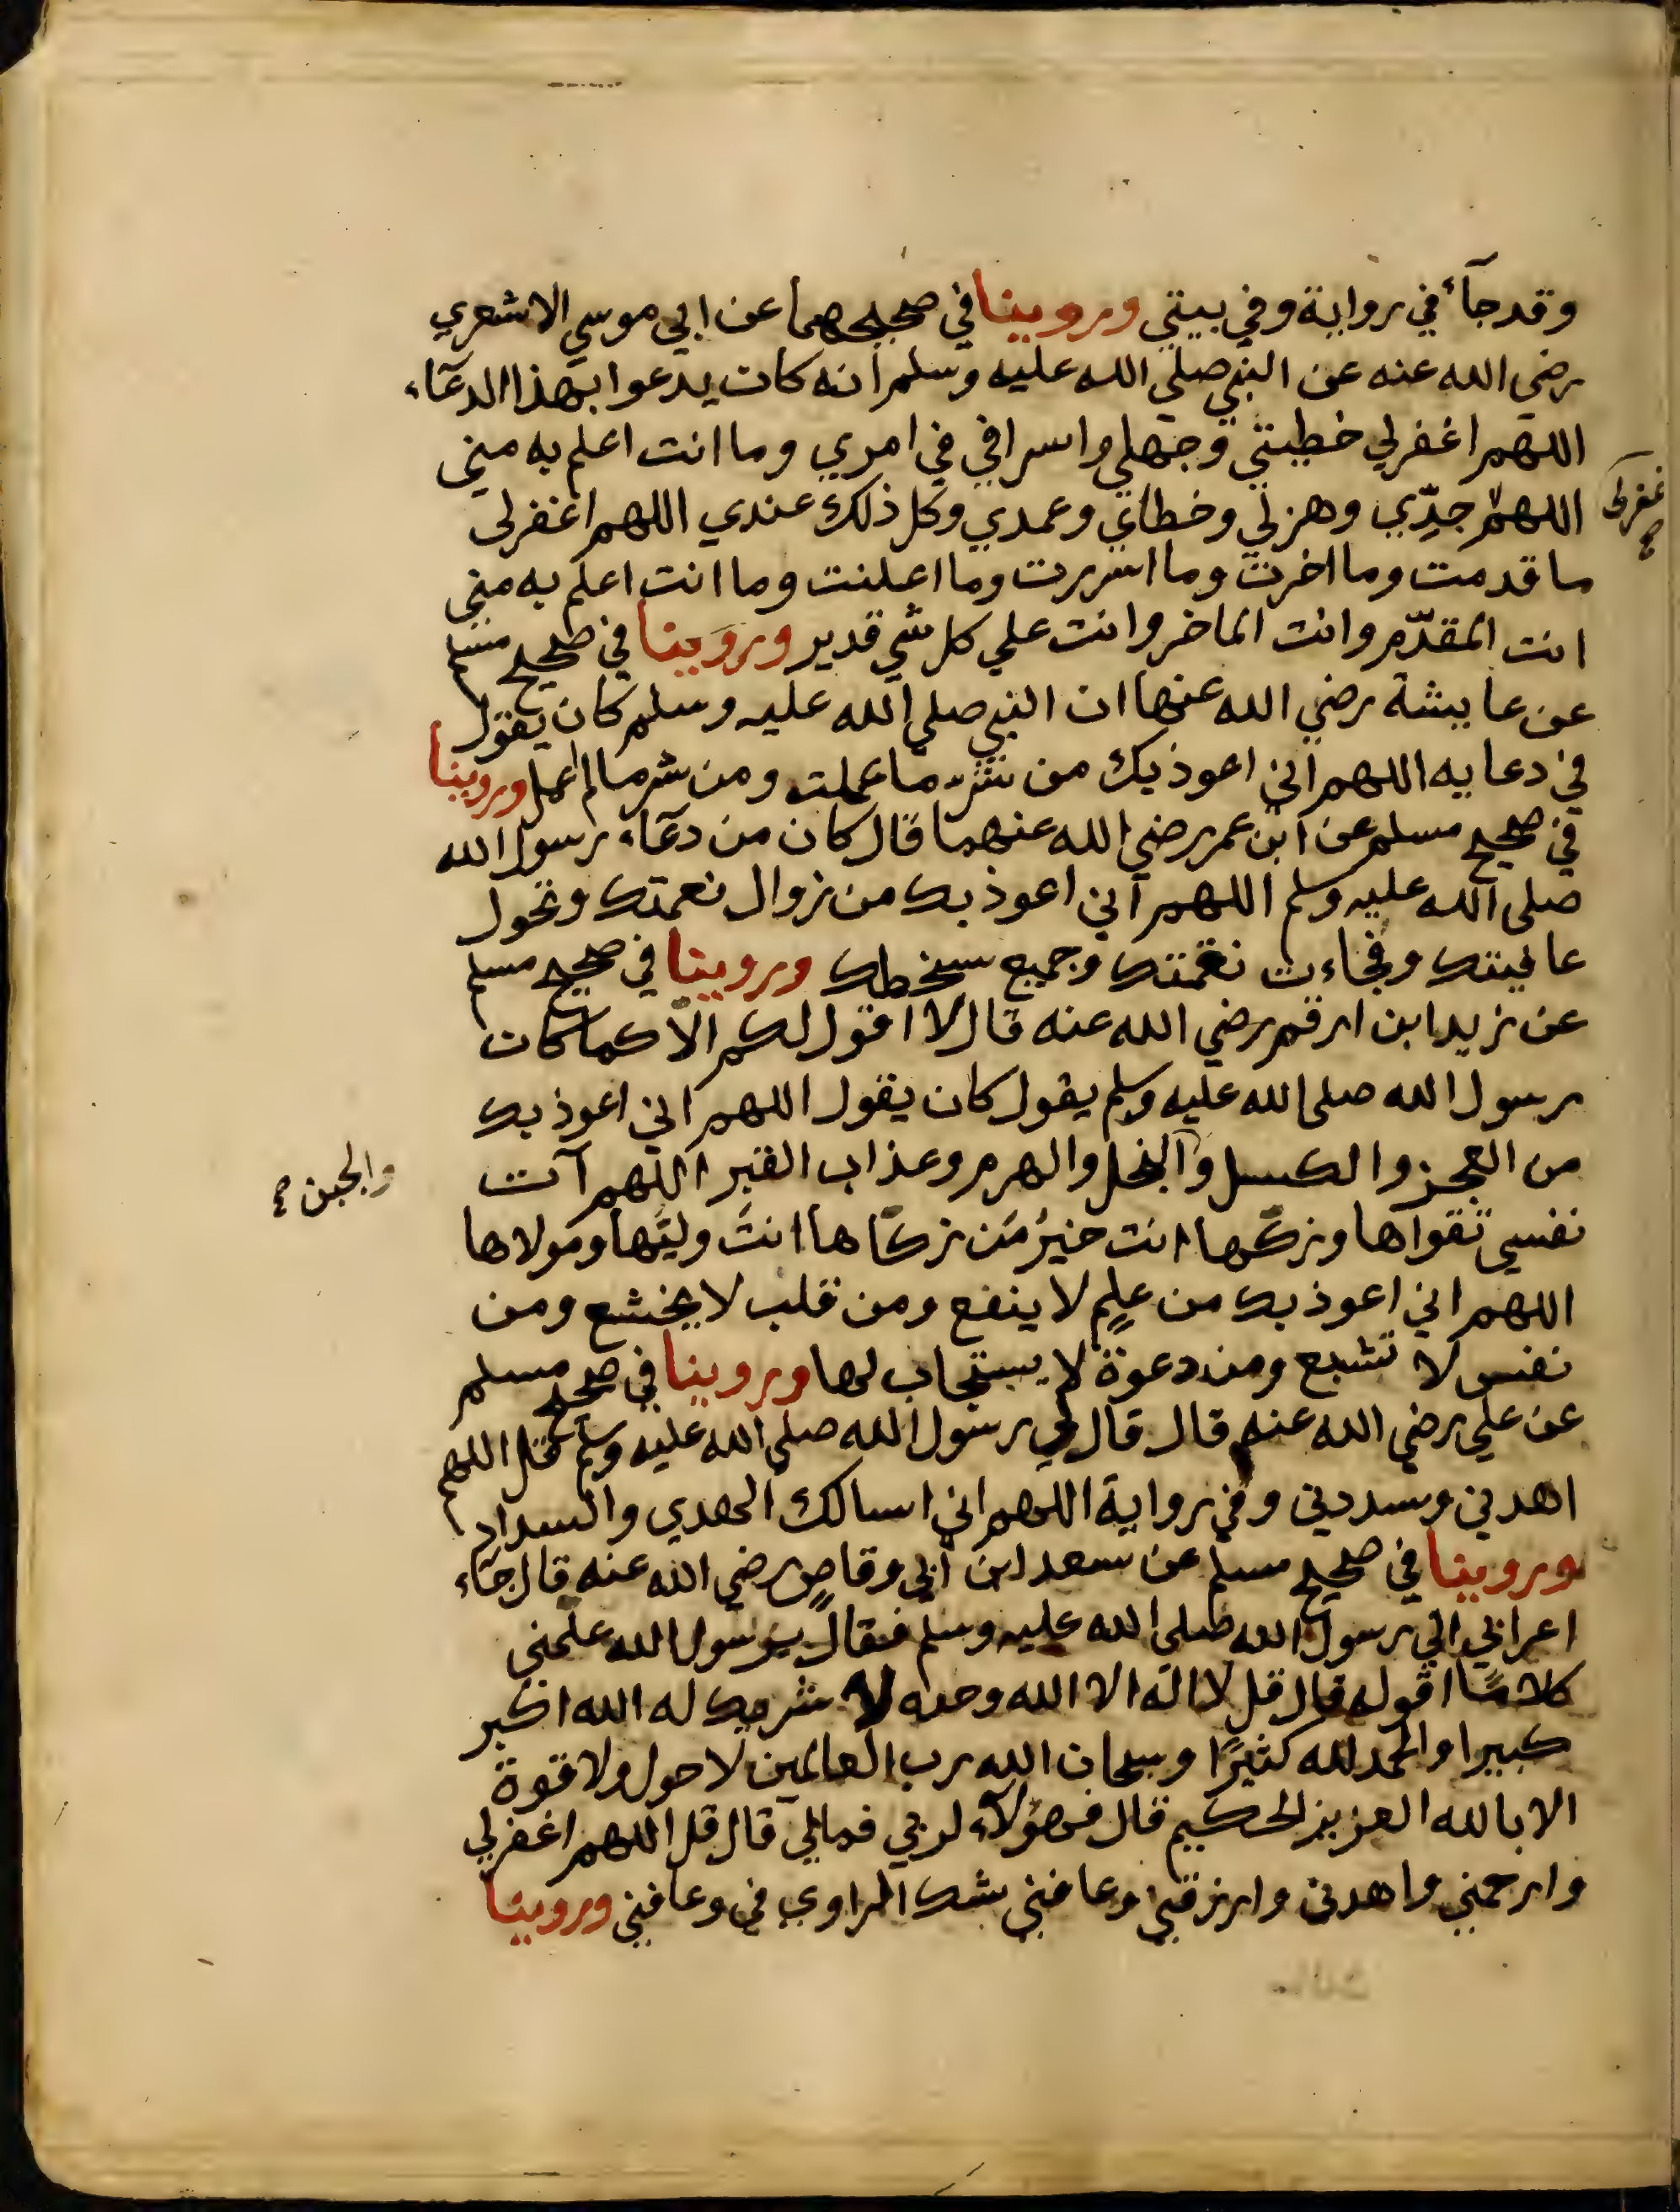 وقد جآء في رواية وفي بيتي وروينا في صحيحهما عن ابي موسي الاشعري
رضي الله عنه عن النبي صلي الله عليه وسلم انه كان يدعوا بهذا الدعآء
اللهم اغفرلي خطيئتي وجهلي واسرافي في امري وما انت اعلم به مني
اللهم جدّي وهزلي وخطاي وعمدي وكل ذلك عندي اللهم اغفرلى
غفرلى صح
ما قدمت وما اخرت وما اسررت وما اعلنت وما انت اعلم به مني
انت المقدّم وانت الماخر وانت علي كل شي قدير وروينا في صحيح مسلم
عن عايشة رضي الله عنها ان النبي صلي الله عليه وسلم كان يقول
في دعايه اللهم اني اعوذ بك من شرّ ما عملت ومن شر مالم اعمل وروينا
في صحيح مسلم عن ابن عمر رضي الله عنهما قال كان من دعآء رسول الله
صلى الله عليه وسلم اللهم اني اعوذ بك من زوال نعمتك وتحول
عافيتك وفجاءت نقمتك وجميع سخطك وروينا في صحيح مسلم
عن زيد ابن ارقم رضي الله عنه قال لا اقول لكم الا كما كان
رسول الله صلى الله عليه وسلم يقول كان يقول اللهم اني اعوذ بك
من العجز والكسل والبخل والهرم وعذاب القبر اللهم آت
والجبن صح
نفسي تقواها وزكّها انت خيرُ مَن زكّاها انتَ وليّها ومولاها
اللهم اني اعوذ بك من علمٍ لا ينفع ومن قلب لا يخشع ومن
نفس لا تشبع ومن دعوة لا يستجاب لها وروينا في صحيح مسلم
عن علي رضي الله عنه قال قال لي رسول الله صلى الله عليه وسلم قل اللهم
اهدني وسددني وفي رواية اللهم اني اسالك الهدي والسداد
وروينا في صحيح مسلم عن سعد ابن ابي وقاصٍ رضي الله عنه قال جآء
اعرابي الي رسول الله صلى الله عليه وسلم فقال يرسول الله علمني
كلامًا اقوله قال قل لا اله الا الله وحده لا شريك له الله اكبر
كبيرا والحمد لله كثيرًا وسبحان الله رب العالمين لا حول ولا قوة
الا بالله العزيز الحكيم قال فهؤلآء لربي فمالي قال قل اللهم اغفرلي
وارحمني واهدني وارزقني وعافني شك الراوي في وعافني وروينا